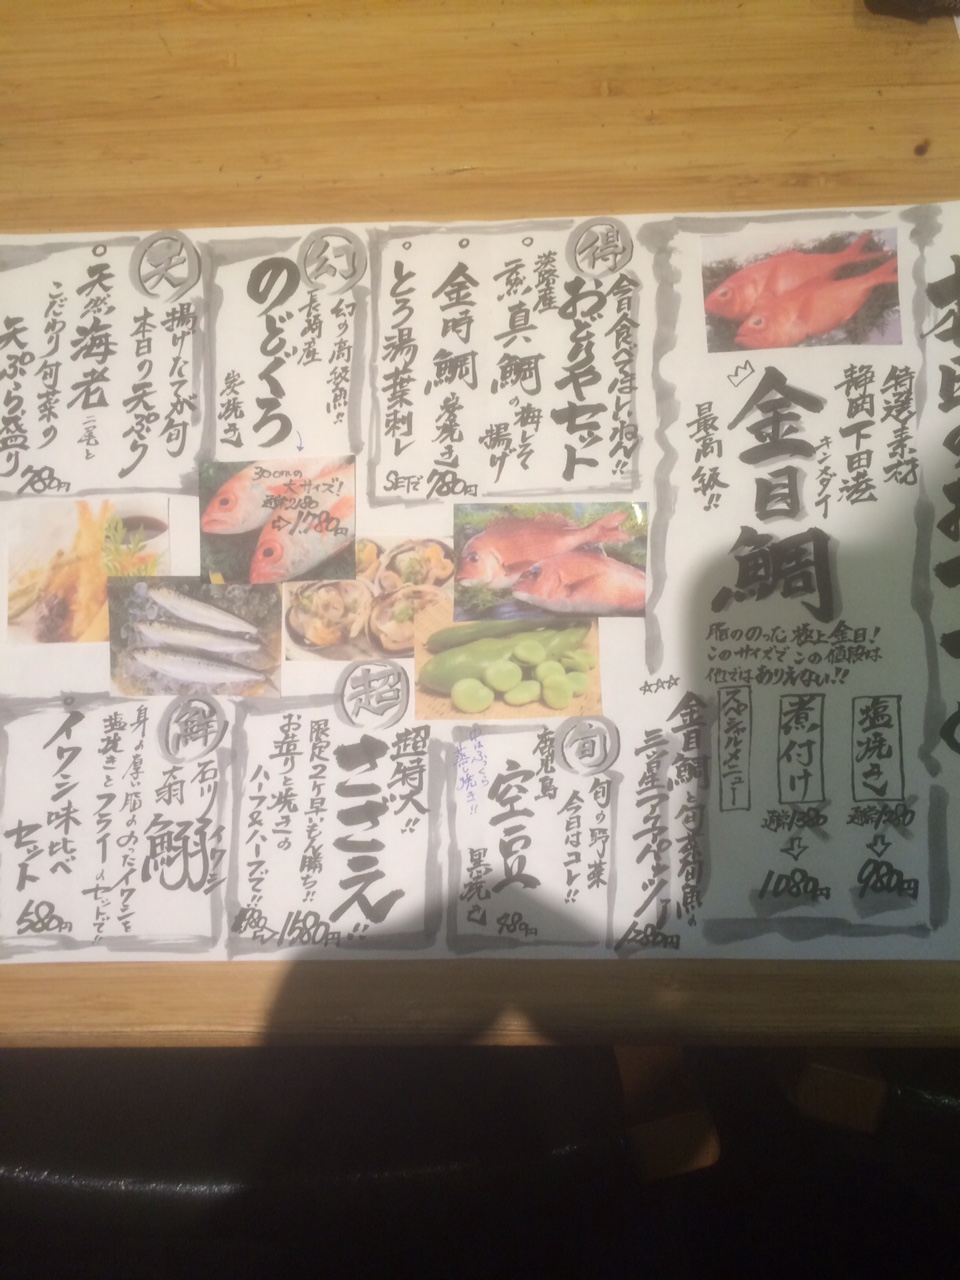 特選素材
静岡下田港
キンメダイ
金目鯛
最高級!!
脂ののった極上金目!
このサイズでこの値段は
他ではありえない!!
塩焼き
980円
煮付け
1080円
スペシャルメニュー
☆☆☆
金目鯛と旬菜旬魚の
1280円
得
今日食べてほしいねん!!
おどりやセット
淡路産
真鯛の梅しそ
揚げ
金時鯛 炭焼き
とろ湯葉刺し
SETで 780円
幻
幻の高級魚!!
長崎産
のどぐろ
炭焼き
30cmの
大サイズ!
通常2180
⇨1,780円
天
揚げたてが旬
本日の天ぷら
天然海老 二尾と
こだわり旬菜の
天ぷら盛り
780円
旬
旬の野菜
今日はコレ!!
鹿児島
空豆
黒焼き
480円
超
超特大!!
さざえ!!
限定2ケ早いもん勝ち!!
お造りと焼きの
ハーフ&ハーフで!!
⇨1580円
鮮
石川
イワシ
身の厚い脂ののったイワシを
塩焼きとフライのセットで!!
イワシ味比べ
セット
580円